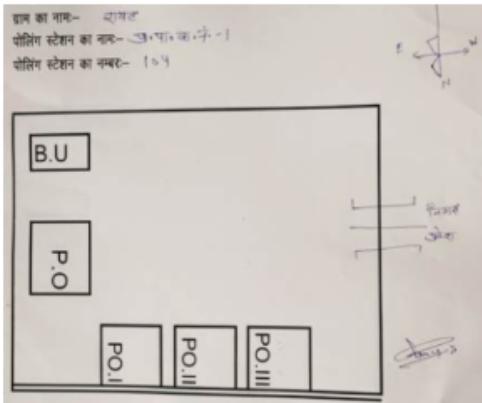 ग्राम का नाम:- रायट
पोलिंग स्टेशन का नाम:- प्रा. पा. क. नं.-1
पोलिंग स्टेशन का नम्बर:- 104
N
B.U
P.O
PO.I
PO.II
PO.III
निकास
प्रवेश